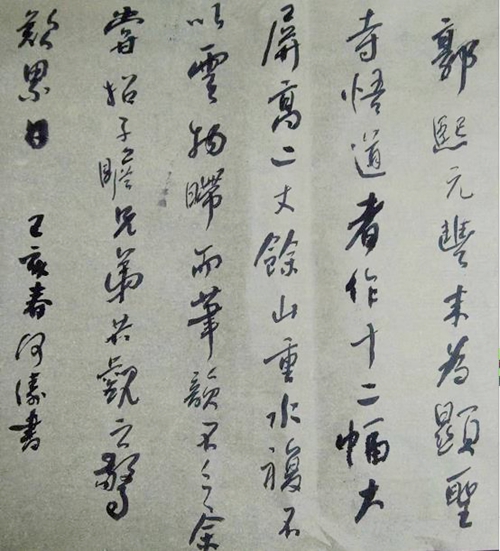 郭熙元豐末為顯聖
寺悟道者作十二幅大
屏高二丈餘山重水複不
以雲物蹛而筆韻不乏余
嘗招子瞻兄弟共觀之驚
歎累日 丁亥春 何 書